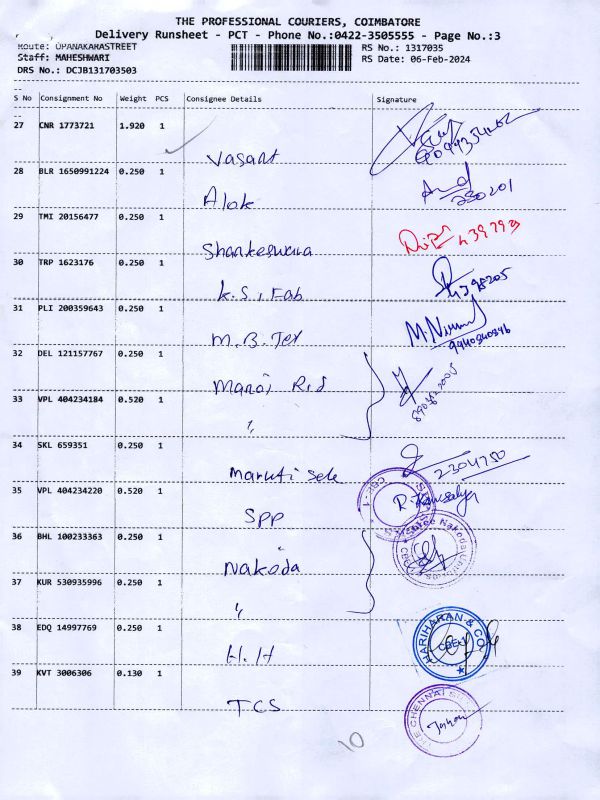 THE PROFESSIONAL COURIERS, COIMBATORE
Delivery Runsheet - PCT - Phone No.:0422-3505555 - Page No.:3
Route: OPANAKARASTREET
RS No.: 1317035
Staff: MAHESHWARI
RS Date: 06-Feb-2024
DRS No.: DCJB131703503
S No Consignment No Weight PCS Consignee Details Signature
27 CNR 1773721 1.920 1
Vasant
28 BLR 1650991224 0.250 1
Alok
230201
29 TMI 20156477 0.250 1
Shankeswara
439793
30 TRP 1623176 0.250 1
K.S. Fab
4398205
31 PLI 200359643 0.250 1
M.B. Tex
M.
32 DEL 121157767 0.250 1
Manoj R.S
33 VPL 404234184 0.520 1
"
34 SKL 659351 0.250 1
Maruti Sele
2304750
35 VPL 404234220 0.520 1
SPP
R. Kausalya
CBE-1
36 BHL 100233363 0.250 1
Nakoda
Shree Nakoda
37 KUR 530935996 0.250 1
"
38 EDQ 14997769 0.250 1
H.H
HARIHARAN & CO
CBE-1
39 KVT 3006306 0.130 1
TCS
THE CHENNAI
10